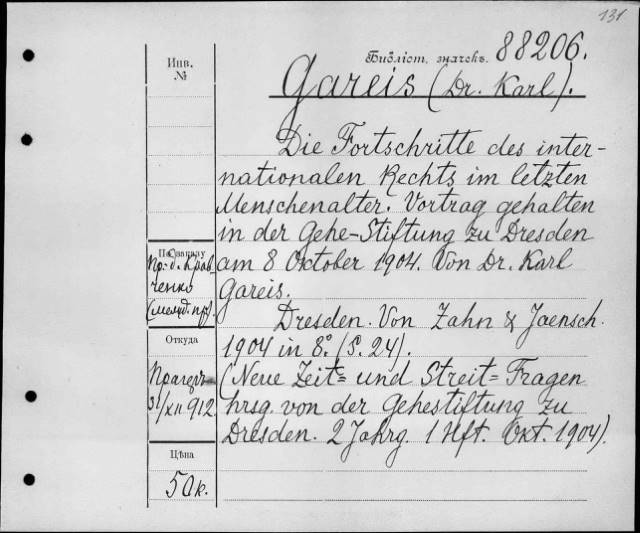 131
Инв.
№
Библіот. значекъ. 88206.
Gareis (Dr. Karl).
Die Fortschritte des inter-
nationalen Rechts im letzten
Menschenalter. Vortrag gehalten
in der Gehe-Stiftung zu Dresden
По заказу
Пр.-д. Крав
am 8 Oktober 1904. Von Dr. Karl
ченко
Gareis.
(межд. пр).
Dresden. Von Zahn & Jaensch.
Откуда
1904 in 8º. (S. 24).
(Neue Zeit= und Streit=Fragen
31/XII 912.
hrsg. von der Gehestiftung zu
Dresden. 2 Jahrg. 1 Hft. Okt. 1904).
Цѣна
50к.